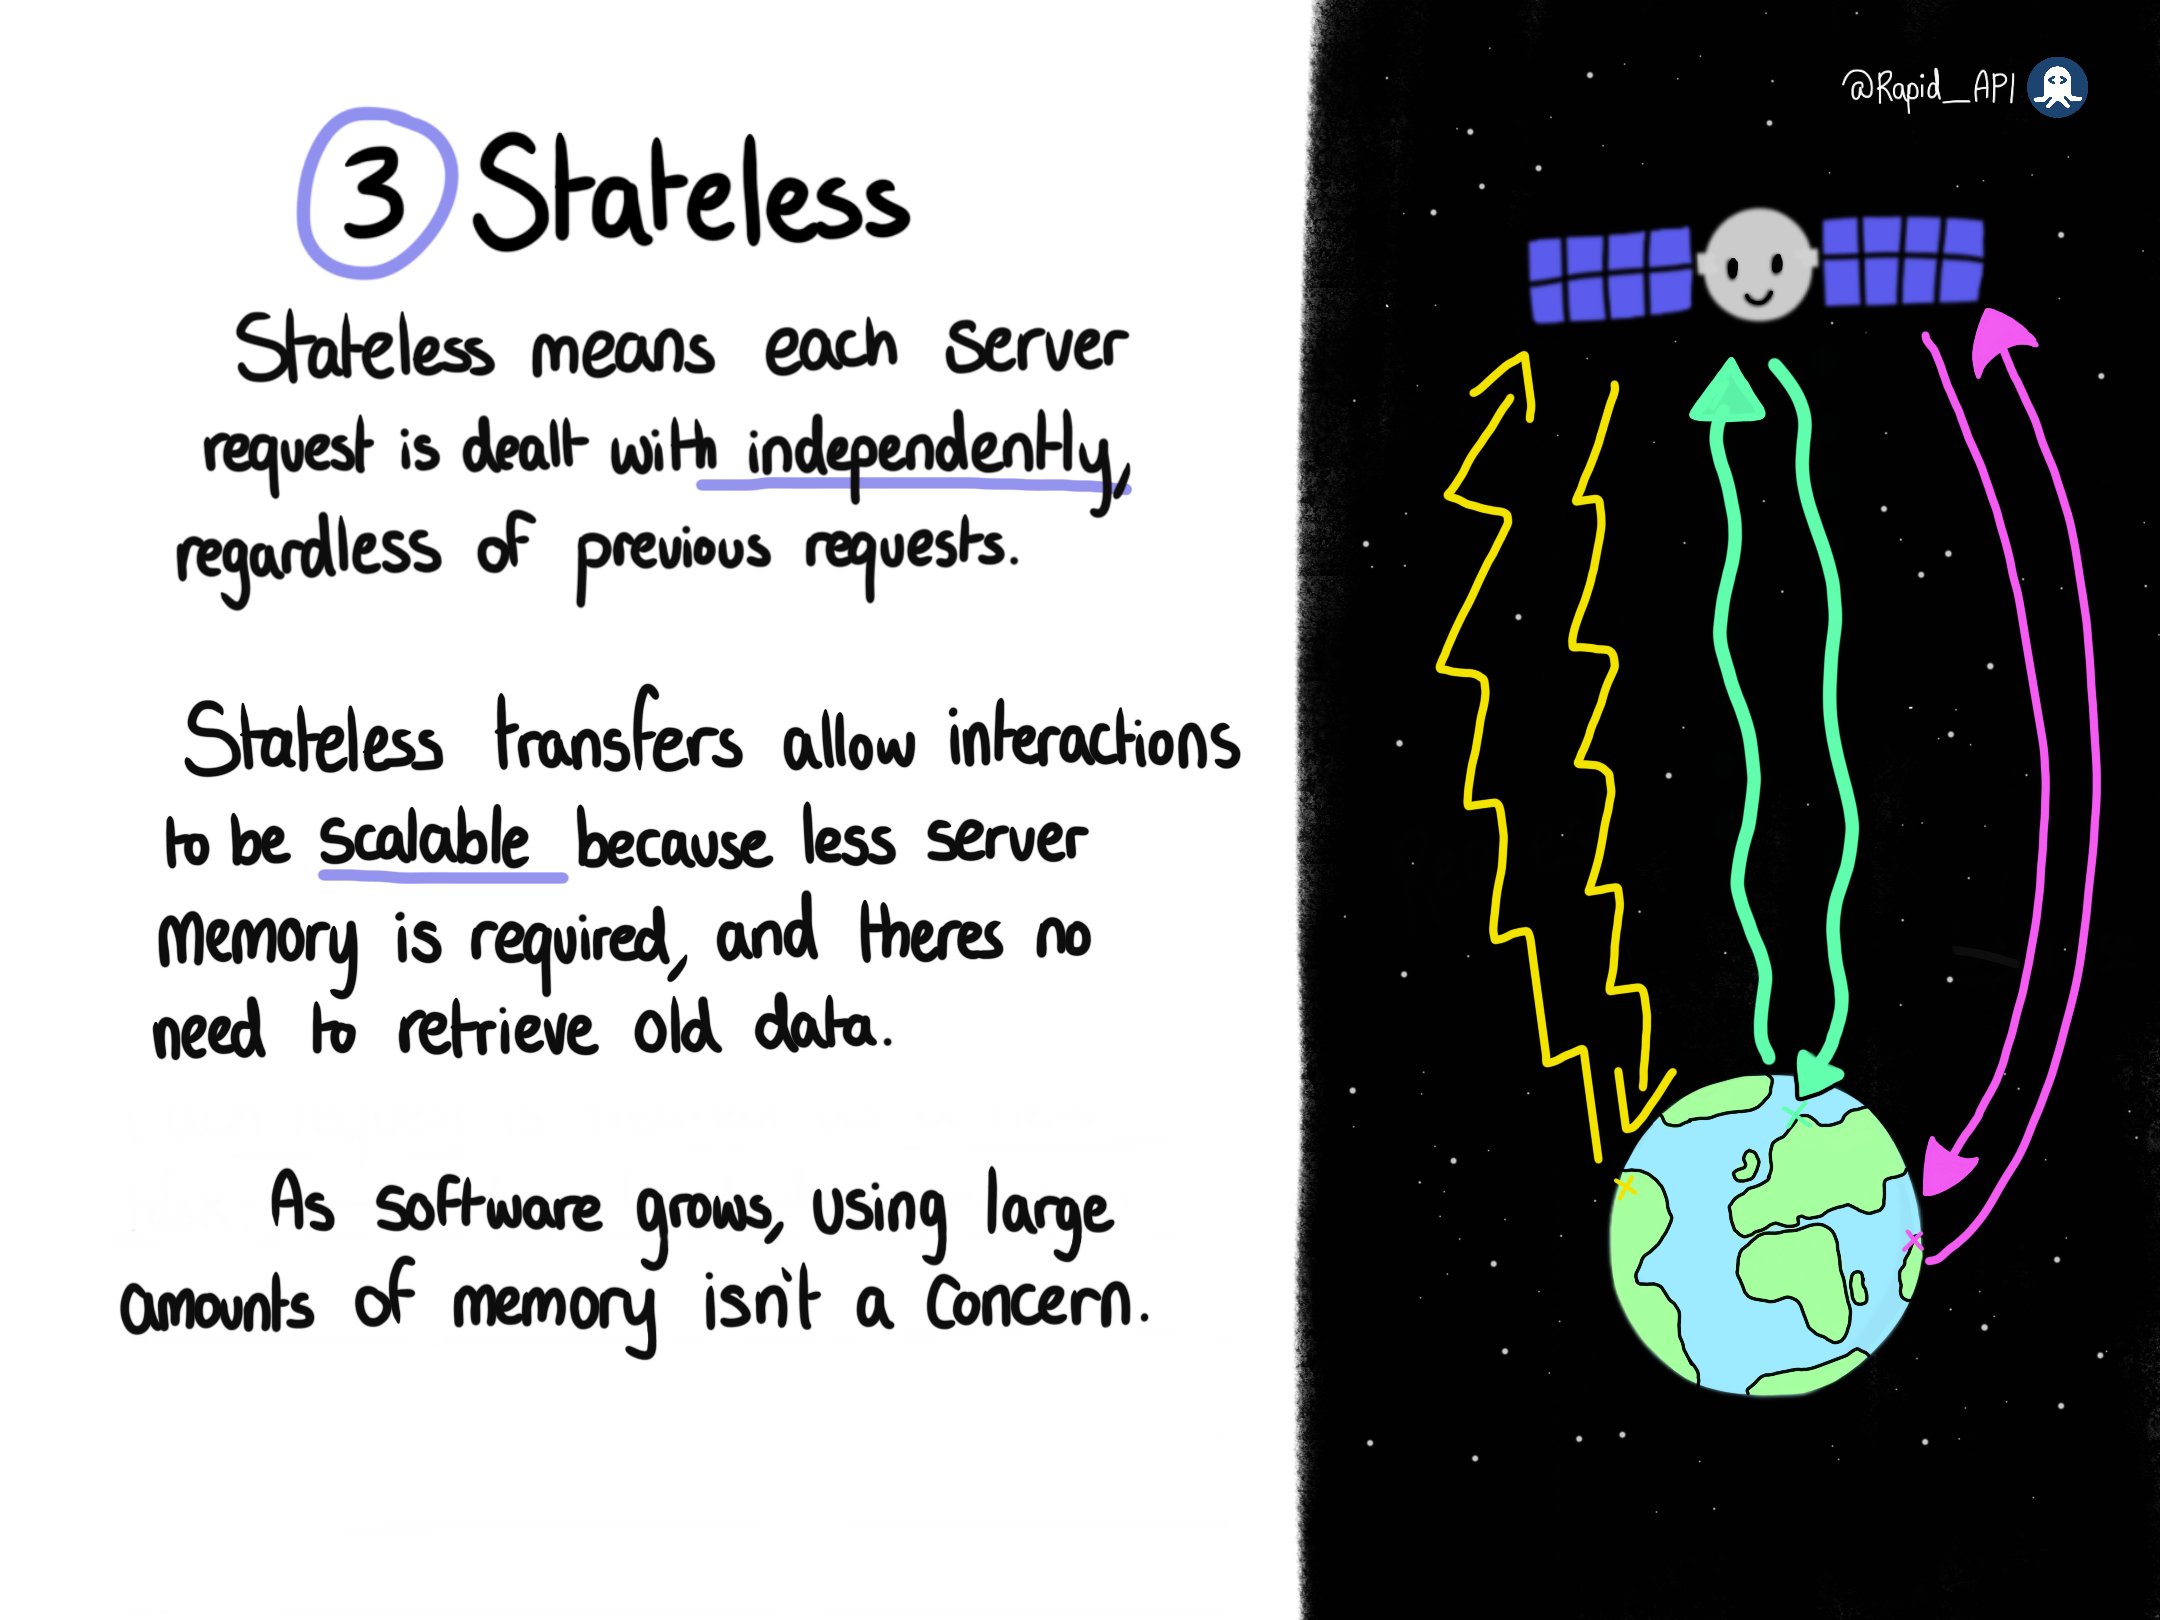 @Rapid_API
3 Stateless
Stateless means each server
request is dealt with independently,
regardless of previous requests.
Stateless transfers allow interactions
to be scalable because less server
memory is required, and theres no
need to retrieve old data.
As software grows, using large
amounts of memory isn't a concern.